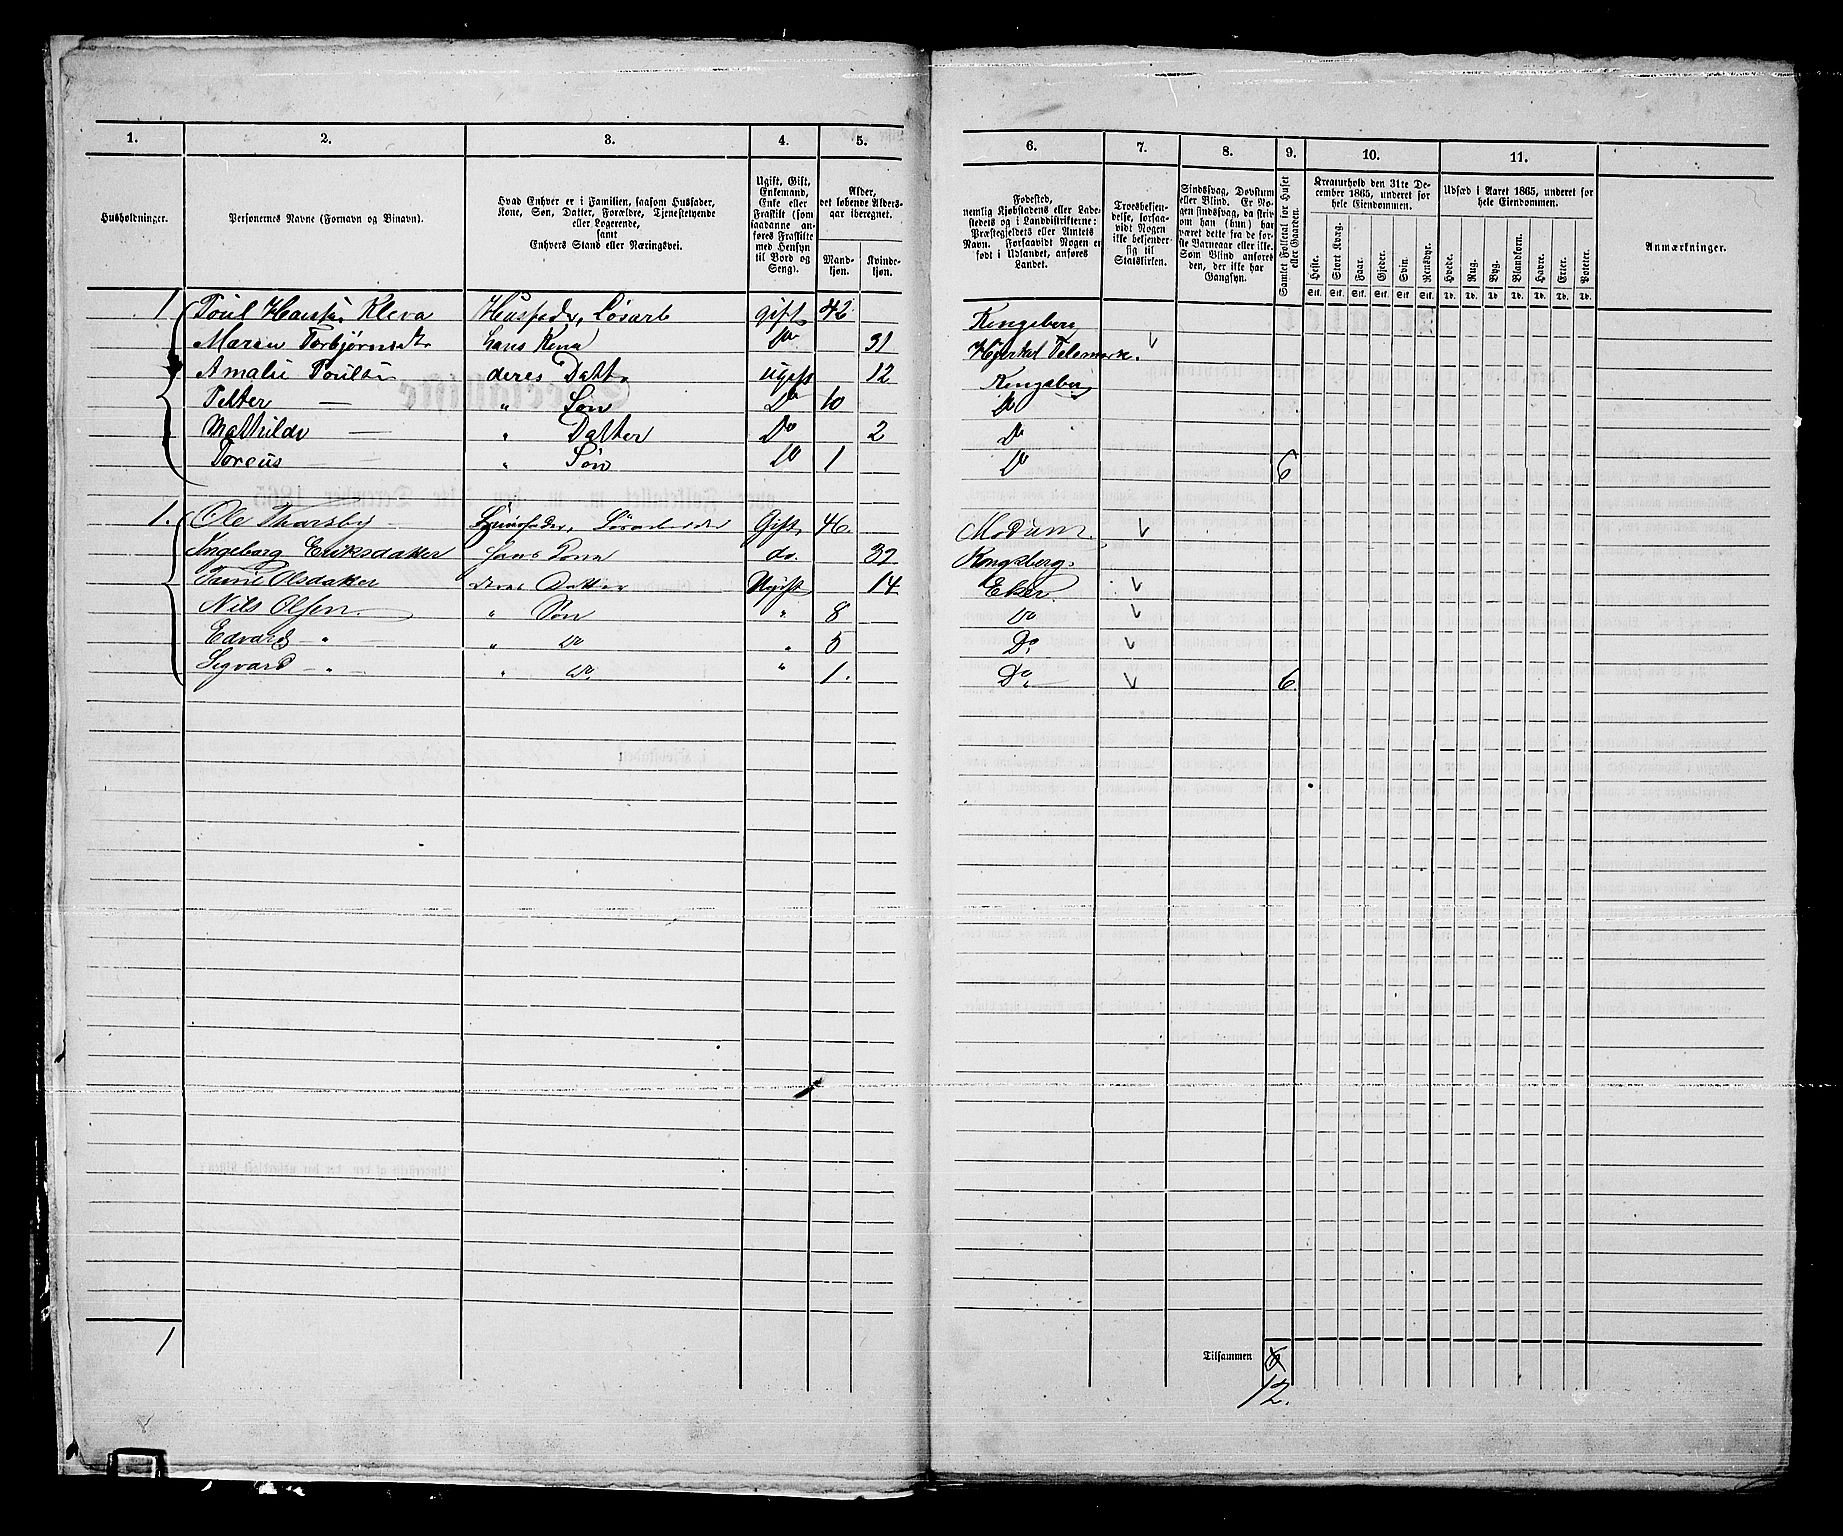 1. 2. 3. 4. 5. 6. 7. 8. 9. 10. 11.
Husholdninger.
Personernes Navne (Fornavn og Binavn).
Hvad Enhver er i Familien, saasom Husfader,
Kone, Søn, Datter, Forældre, Tjenestetyende
eller Logerende,
samt
Enhvers Stand eller Næringsvei.
Ugift, Gift,
Enkemand,
Enke eller
Fraskilt (som
saadanne an-
føres Fraskilte
med Hensyn
til Bord og
Seng).
Alder,
det løbende Alders-
aar iberegnet.
Mand-
kjøn.
Kvinde-
kjøn.
Fødested,
nemlig Kjøbstadens eller Lade-
stedets og i Landdistrikterne:
Præstegjeldets eller Amtets
Navn. Forsaavidt Nogen er
født i Udlandet, anføres
Landet.
Troesbekjen-
delse, forsaa-
vidt Nogen
ikke bekjender
sig til
Statskirken.
Sindssvag, Døvstum
eller Blind. Er No-
gen sindssvag, da skriv
om han (hun) har
været dette fra de før-
ste Barneaar eller ikke.
Som Blind anføres
den, der ikke har
Gangsyn.
Samlet Folketal for Huset
eller Gaarden.
Kreaturhold den 31te De-
cember 1865, underet for
hele Eiendommen.
Heste. Stort Kvæg. Faar. Gjeder. Svin. Rensdyr.
Stk. Stk. Stk. Stk. Stk. Stk.
Udsæd i Aaret 1865, underet for
hele Eiendommen.
Hvede. Rug. Byg. Blandkorn. Havre. Erter. Poteter.
Td. Td. Td. Td. Td. Td. Td.
Anmærkninger.
1 Poul Kleva Husfader, Løsarb gift 42 Kongsberg
Maren Torbjørnsdtr hans Kona Do 31 Hjerdal Telemark.
Amalie Poulsen deres Datt. ugift 12 Kongsberg
Petter — " Søn Do 10 Do
Mathilde — " Datter Do 2 Do
— " Søn Do 1 Do 6
1. Ole Thorsby Huusfader, Løsarbeider Gift 46. Modum.
Ingeborg Eriksdatter hans Kona do. 32 Kongsberg.
Olsdatter deres Datter Ugift 14 Eker
Nils Olsen. " Søn " 8 Do
Edvard — " — " Do " 5 Do.
Sigvard — " — " Do " 1. Do. 6.
1
Tilsammen
12.